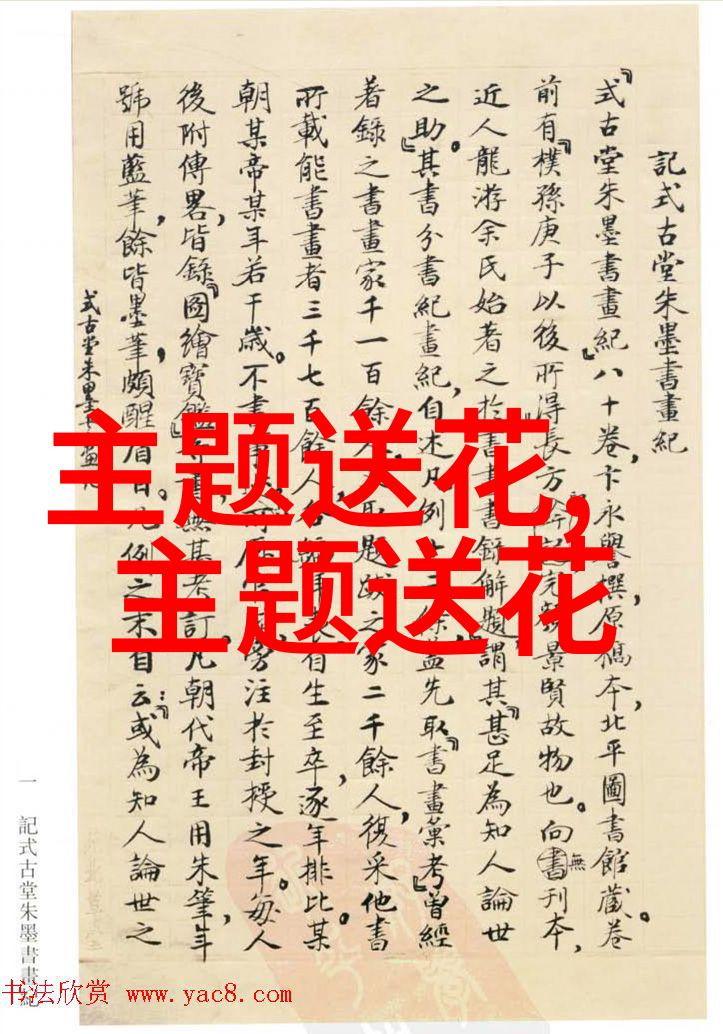 記式古堂朱墨書畫紀
『式古堂朱墨書畫紀』八十卷，卞永譽撰，原稿本，北平圖書館藏。卷
前有『樸孫庚子以後所得』長方印，完顏景賢故物也。向無刊本，
近人龍游余氏始著之於書畫書錄解題，謂其『甚足為知人論世
之助。』其書分書紀畫紀，自述凡例十二條，蓋先取『書畫彙考』曾經
著錄之書畫家千一百餘人，題跋之家二千餘人，復采他書
所載能書畫者三千七百餘人，年表，自生至卒，逐年排比。某
朝某帝某年若干歲。不書事，旁注於封授之年。每人
後附傳畧，皆錄『圖繪寶鑑』，無甚考訂，凡朝代帝王用朱筆，年
號用藍筆，餘皆墨筆，頗醒眉目。凡例之末自云：『或為知人論世之
式古堂朱墨書畫紀
主题送花,
主题送花
一 記式古堂朱墨書畫紀
书法欣赏 www.yac8.com